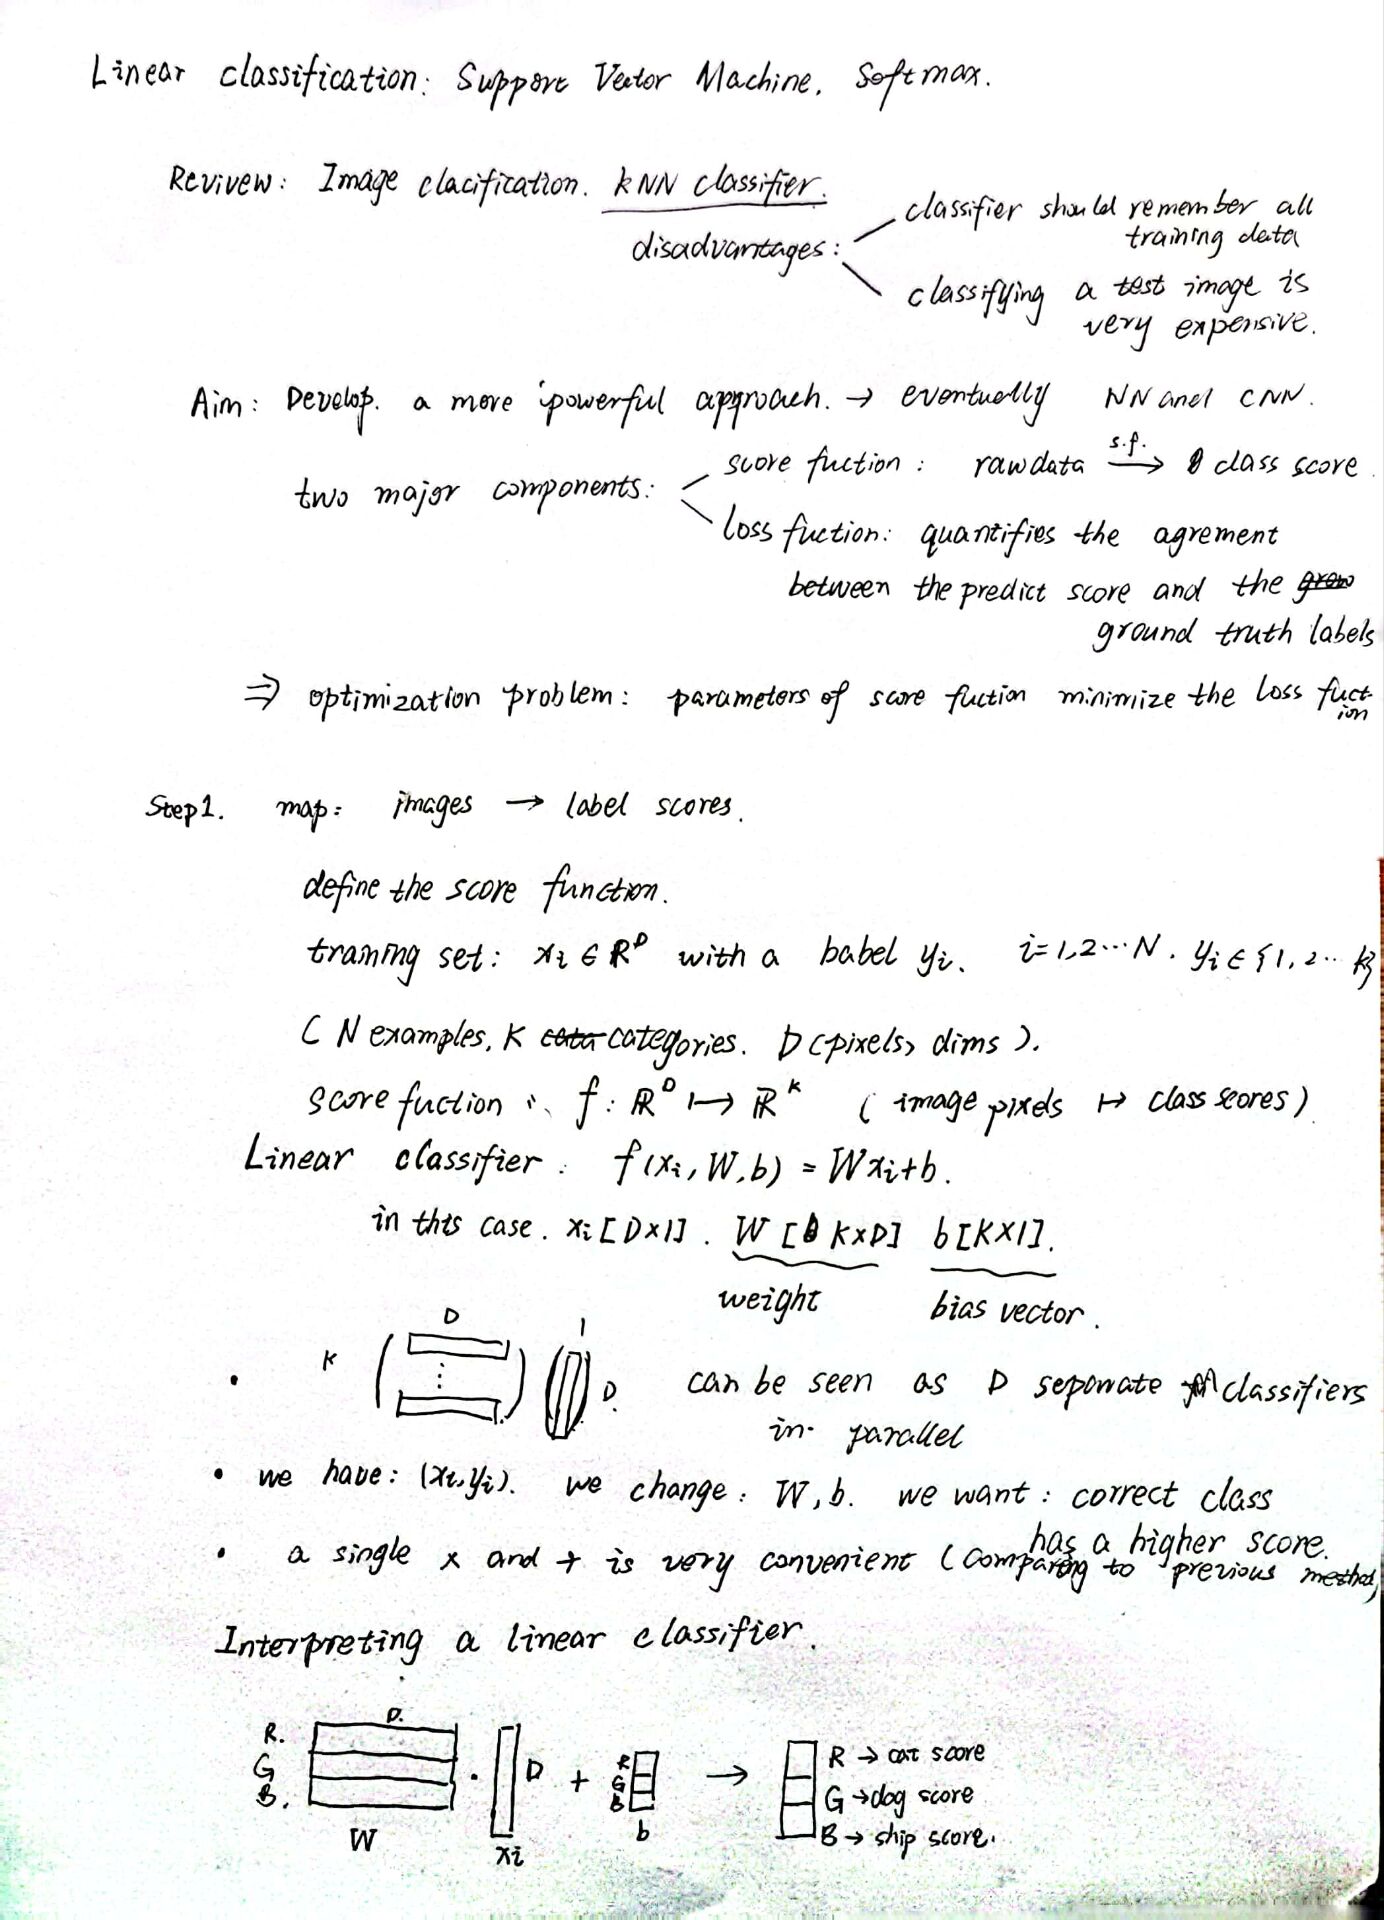 Linear classification: Support Vector Machine. Softmax.
Revivew: Image clacification. kNN classifier.
disadvantages:
classifier should remember all
training data
classifying a test image is
very expensive.
Aim: Develop. a more powerful approach. → eventually NN and CNN.
two major components:
score fuction: raw data s.f. → class score.
loss fuction: quantifies the agrement
between the predict score and the
ground truth labels
⇒ optimization problem: parameters of score fuction minimize the loss fuct
ion
Step1. map: images → label scores.
define the score function.
training set: xi ∈ R^D with a babel yi. i=1,2...N. yi ∈ {1, 2... k}
( N examples, K categories. D (pixels, dims ).
score fuction : f: ℝ^D ↦ ℝ^K ( image pixels ↦ class scores)
Linear classifier: f(xi, W, b) = Wxi+b.
in this case. xi [D×1]. W [K×D] b[K×1].
weight bias vector.
D 1
K ⋮ D.
• can be seen as D seperate classifiers
in parallel
• we have: (xi,yi). we change: W, b. we want: correct class
has a higher score.
• a single x and + is very convenient (comparing to previous method)
Interpreting a linear classifier.
D.
R.
G
B.
W
· D
xi
+
R
G
B
b
→
R → cat score
G → dog score
B → ship score.